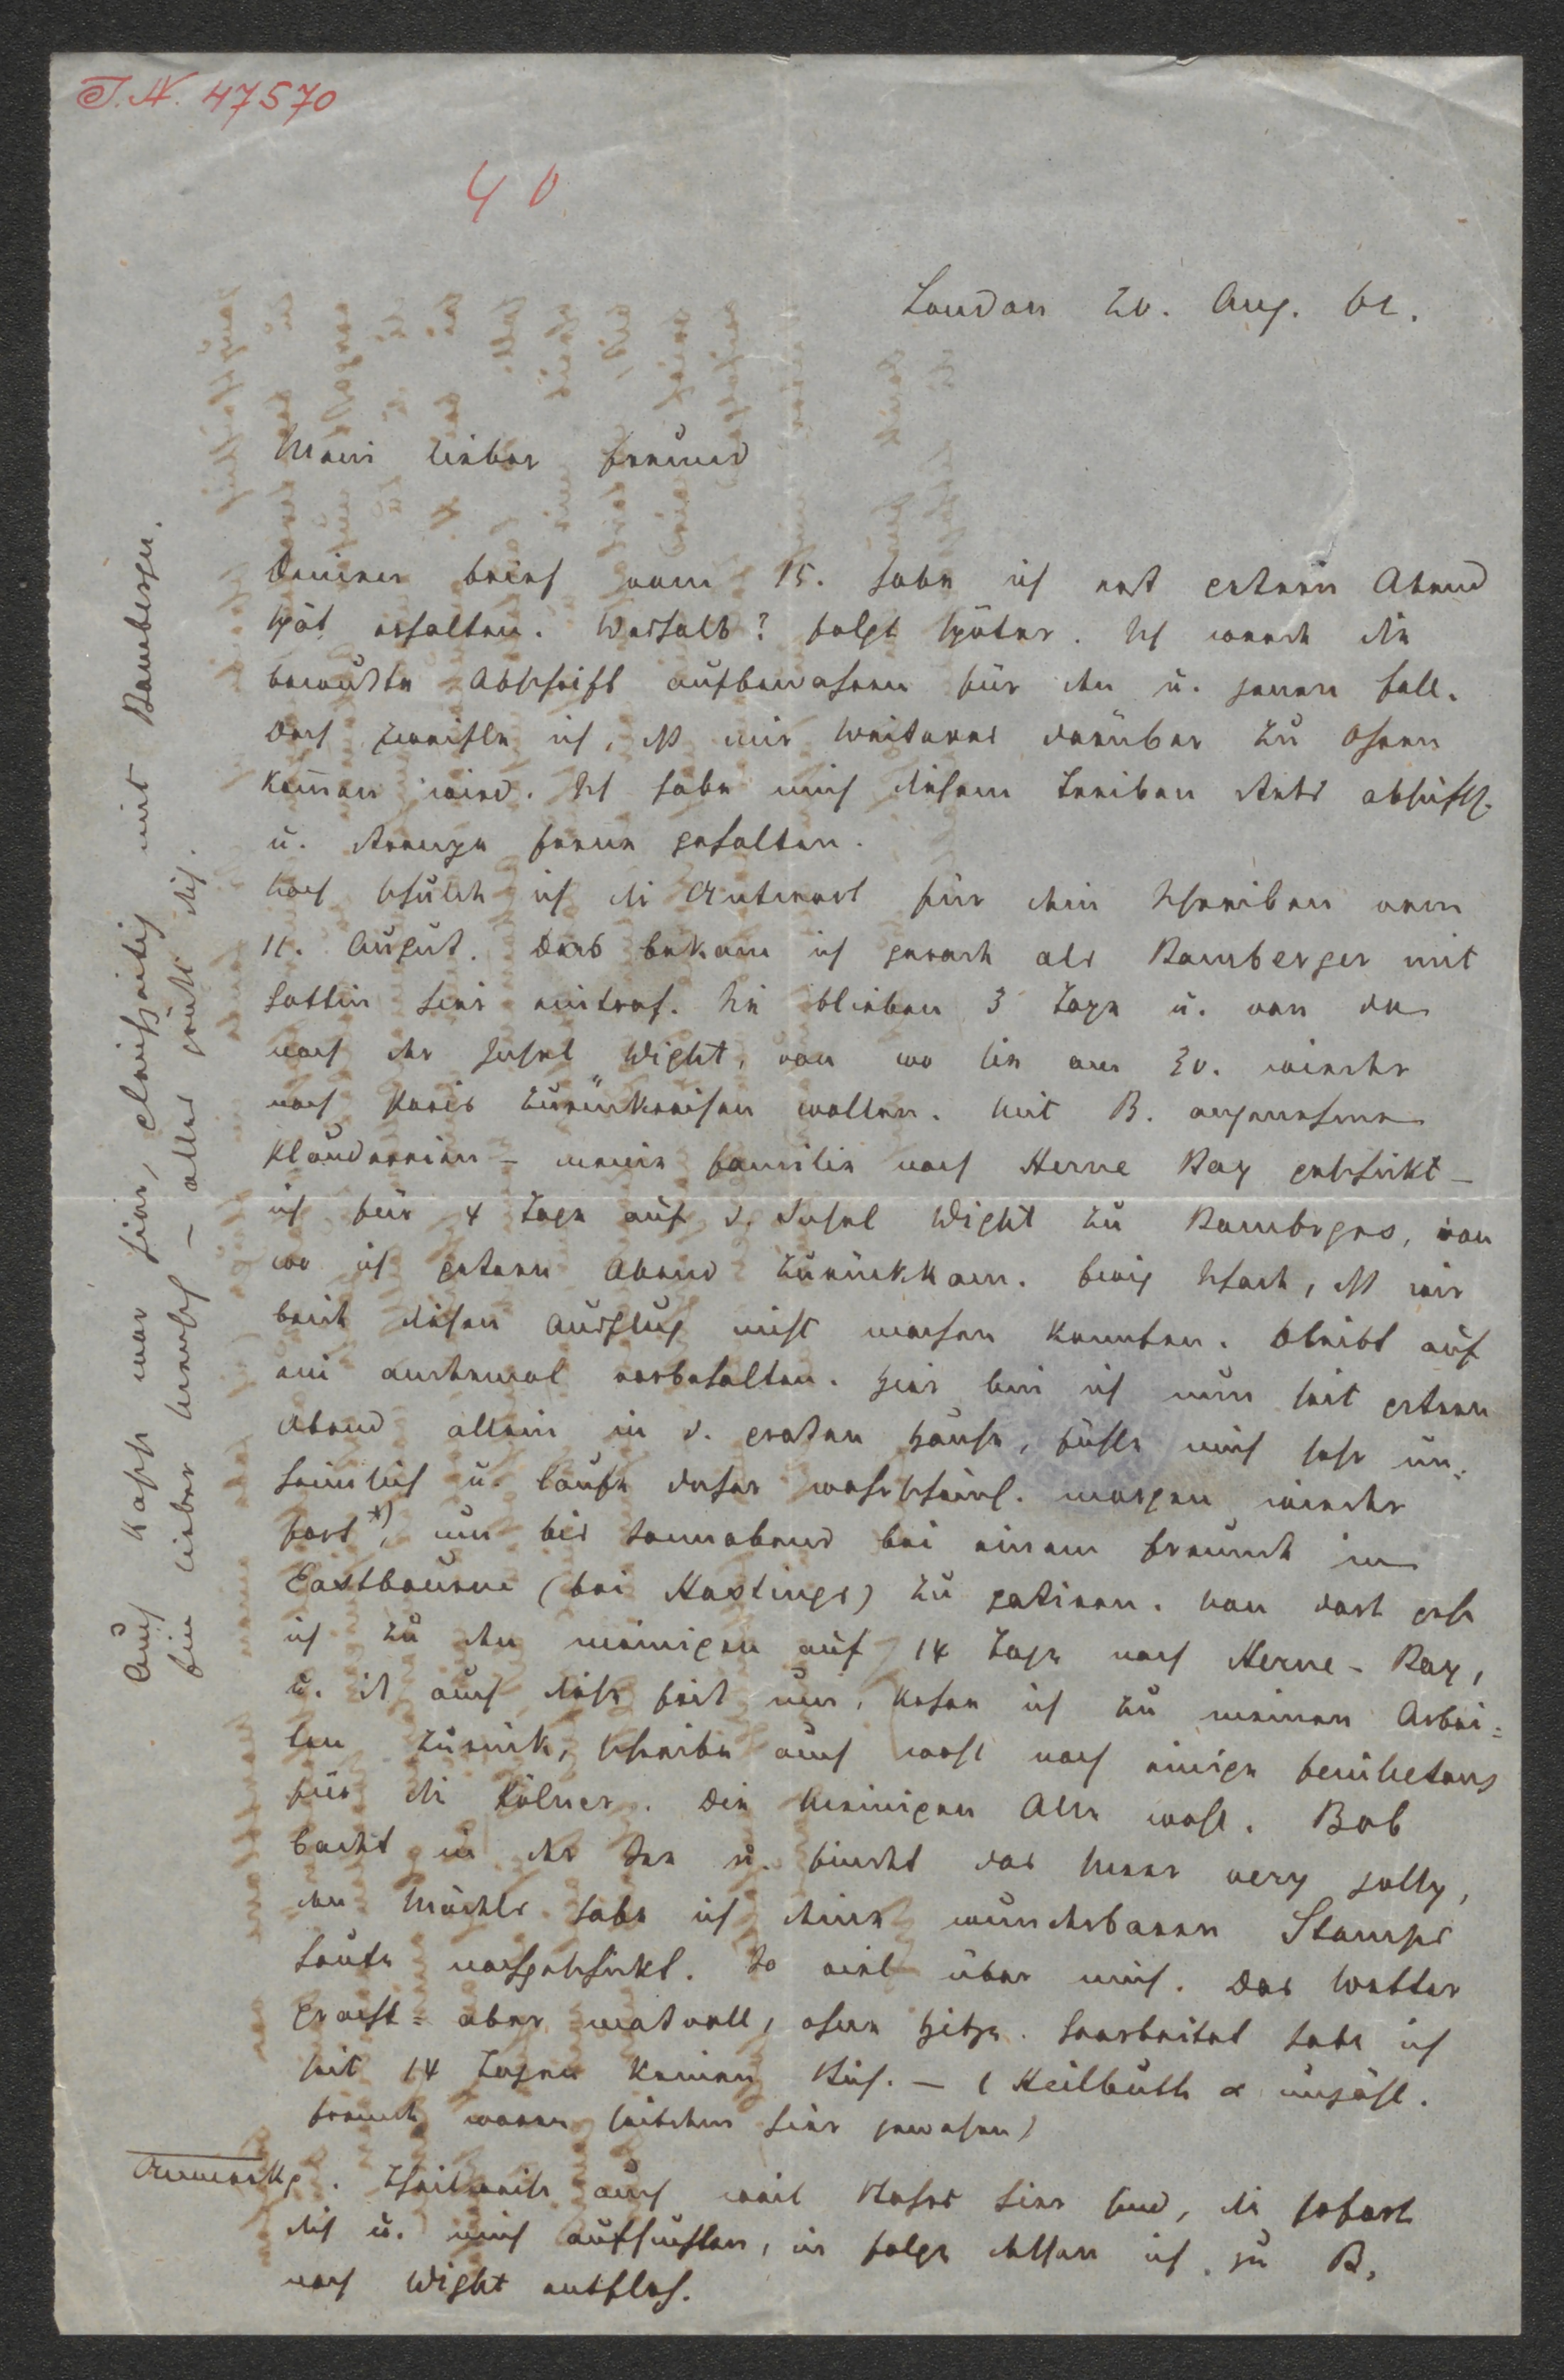 J. N. 47570
40
London 20. Aug. 62.
Mein lieber Freund
Deinen Brief vom 15. habe ich erst gestern Abend
spät erhalten. Weshalb? folgt später. Ich werde die
bewußte Abschrift aufbewahren für den u. jenen Fall.
Doch zweifle ich, daß mir Weiteres darüber zu Ohren
kom̄en wird. Ich habe mich diesem Treiben stets absichtl.
u. strenge ferne gehalten.
Noch schulde ich die Antwort für dein Schreiben vom
11. August. Das bekam ich gerade als Bamberger mit
Gattin hier eintraf. Sie blieben 3 Tage u. von da
nach der Insel Wight, von wo sie am 20. wieder
nach Paris zurückreisen wollten. Mit B. angenehme
Plaudereien – meine Familie nach Herne Bay geschickt –
ich für 4 Tage auf d. Insel Wight zu Bambrgrs, von
wo ich gestern Abend zurückkam. Ewig schade, daß wir
beide diesen Ausflug nicht machen konnten. Bleibt auf
ein andermal vorbehalten. Hier bin ich nun seit gestern
Abend allein in d. großen Hause, fühle mich sehr un-
heimlich u. laufe daher wahrscheinl. morgen wieder
fort*), um bis Sonnabend bei einem Freunde in
Eastbourne (bei Hastings) zu gastiren. Von dort gehe
ich zu den meinigen auf 14 Tage nach Herne-Bay,
u. ist auch diese Zeit um, kehre ich zu meinen Arbei=
ten zurück, schreibe auch wohl noch einige Feuilletons
für die Kölner. Die Meinigen Alle wohl. Bob
badet in der See u. findet das Meer very jolly,
den Mädels habe ich deine wunderbaren Stamps
heute nachgeschickt. So viel über mich. Das Wetter
pracht= aber maßvoll, ohne Hitze. Gearbeitet habe ich
seit 14 Tagen keinen Stich. – (Heilbuth & unzähl.
Freunde waren seitdem hier gewesen)
Anmerkg. Theilweise auch weil Stahrs hier sind, die sofort
dich u. mich aufsuchten, in Folge dessen ich zu B.
nach Wight entfloh.
Auch Kapp war hier, gleichzeitig mit Bamberger.
Du lieber Mensch – alles grüßt dich.